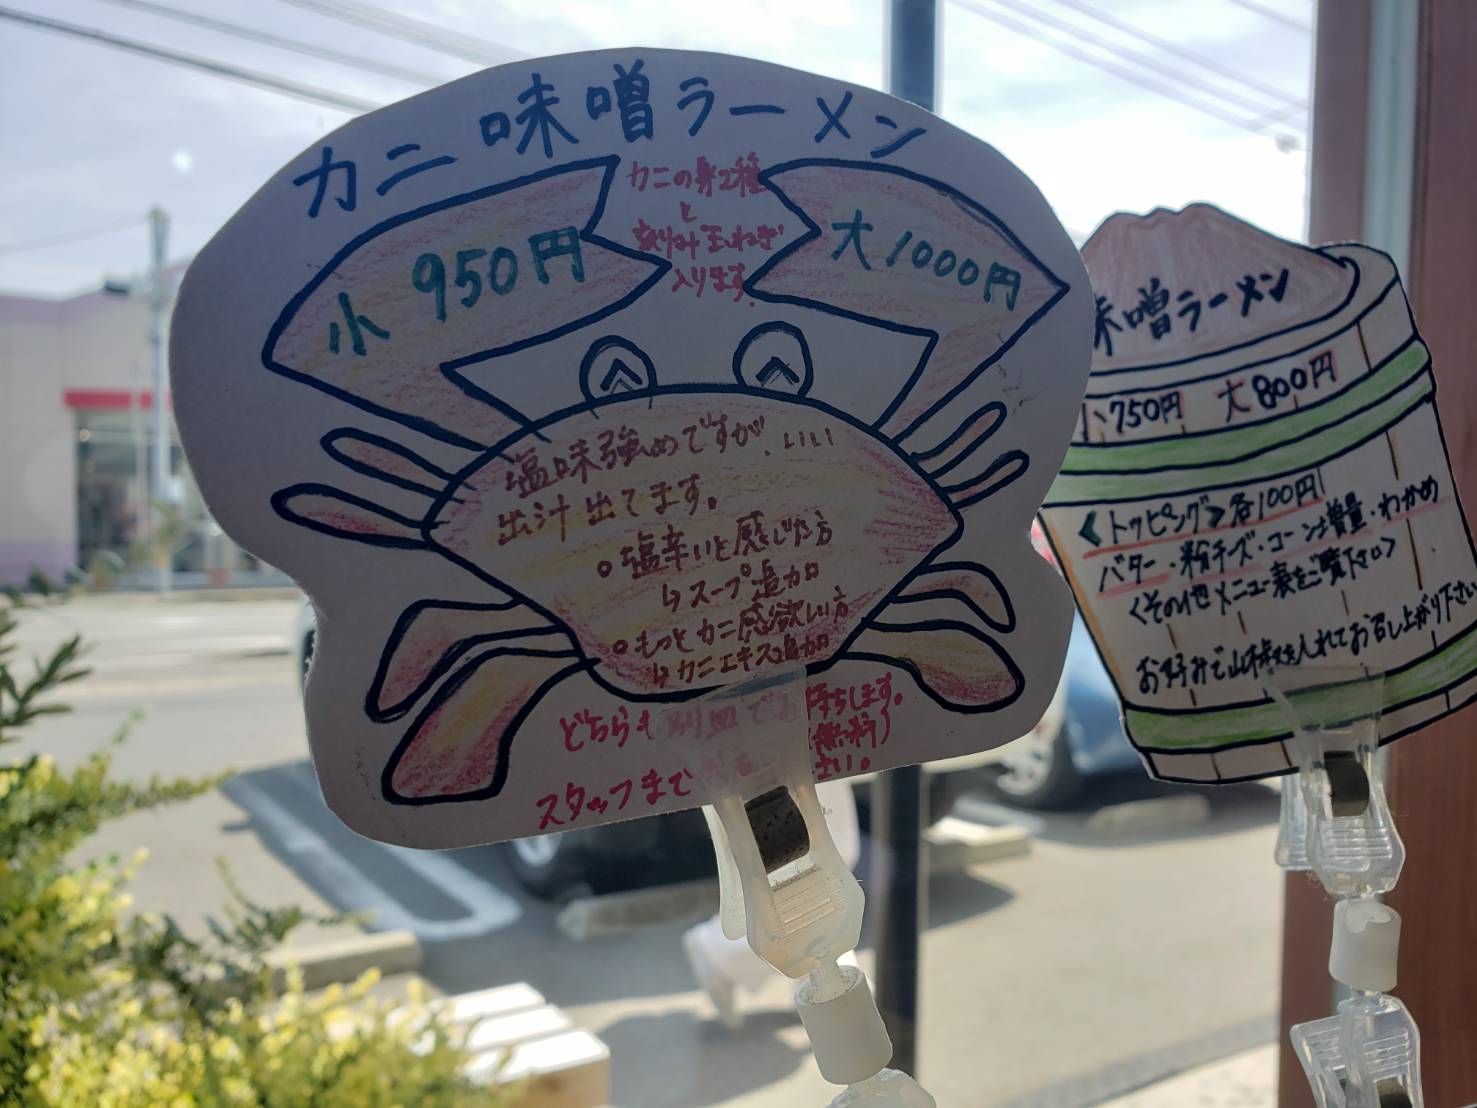 カニ味噌ラーメン
カニの身2種
と
刻み玉ねぎ
入ります。
小 950円
大 1000円
塩味強めですが、いい
出汁出てます。
○塩辛いと感じた方
↳スープ追加
○もっとカニ感欲しい方
↳カニエキス追加
どちらも別皿でお持ちします。
(無料)
スタッフまで さい。
味噌ラーメン
小750円 大800円
<トッピング>各100円
バター・粉チーズ・コーン増量・わかめ
<その他メニュー表をご覧下さい>
お好みで山椒を入れてお召し上がり下さい